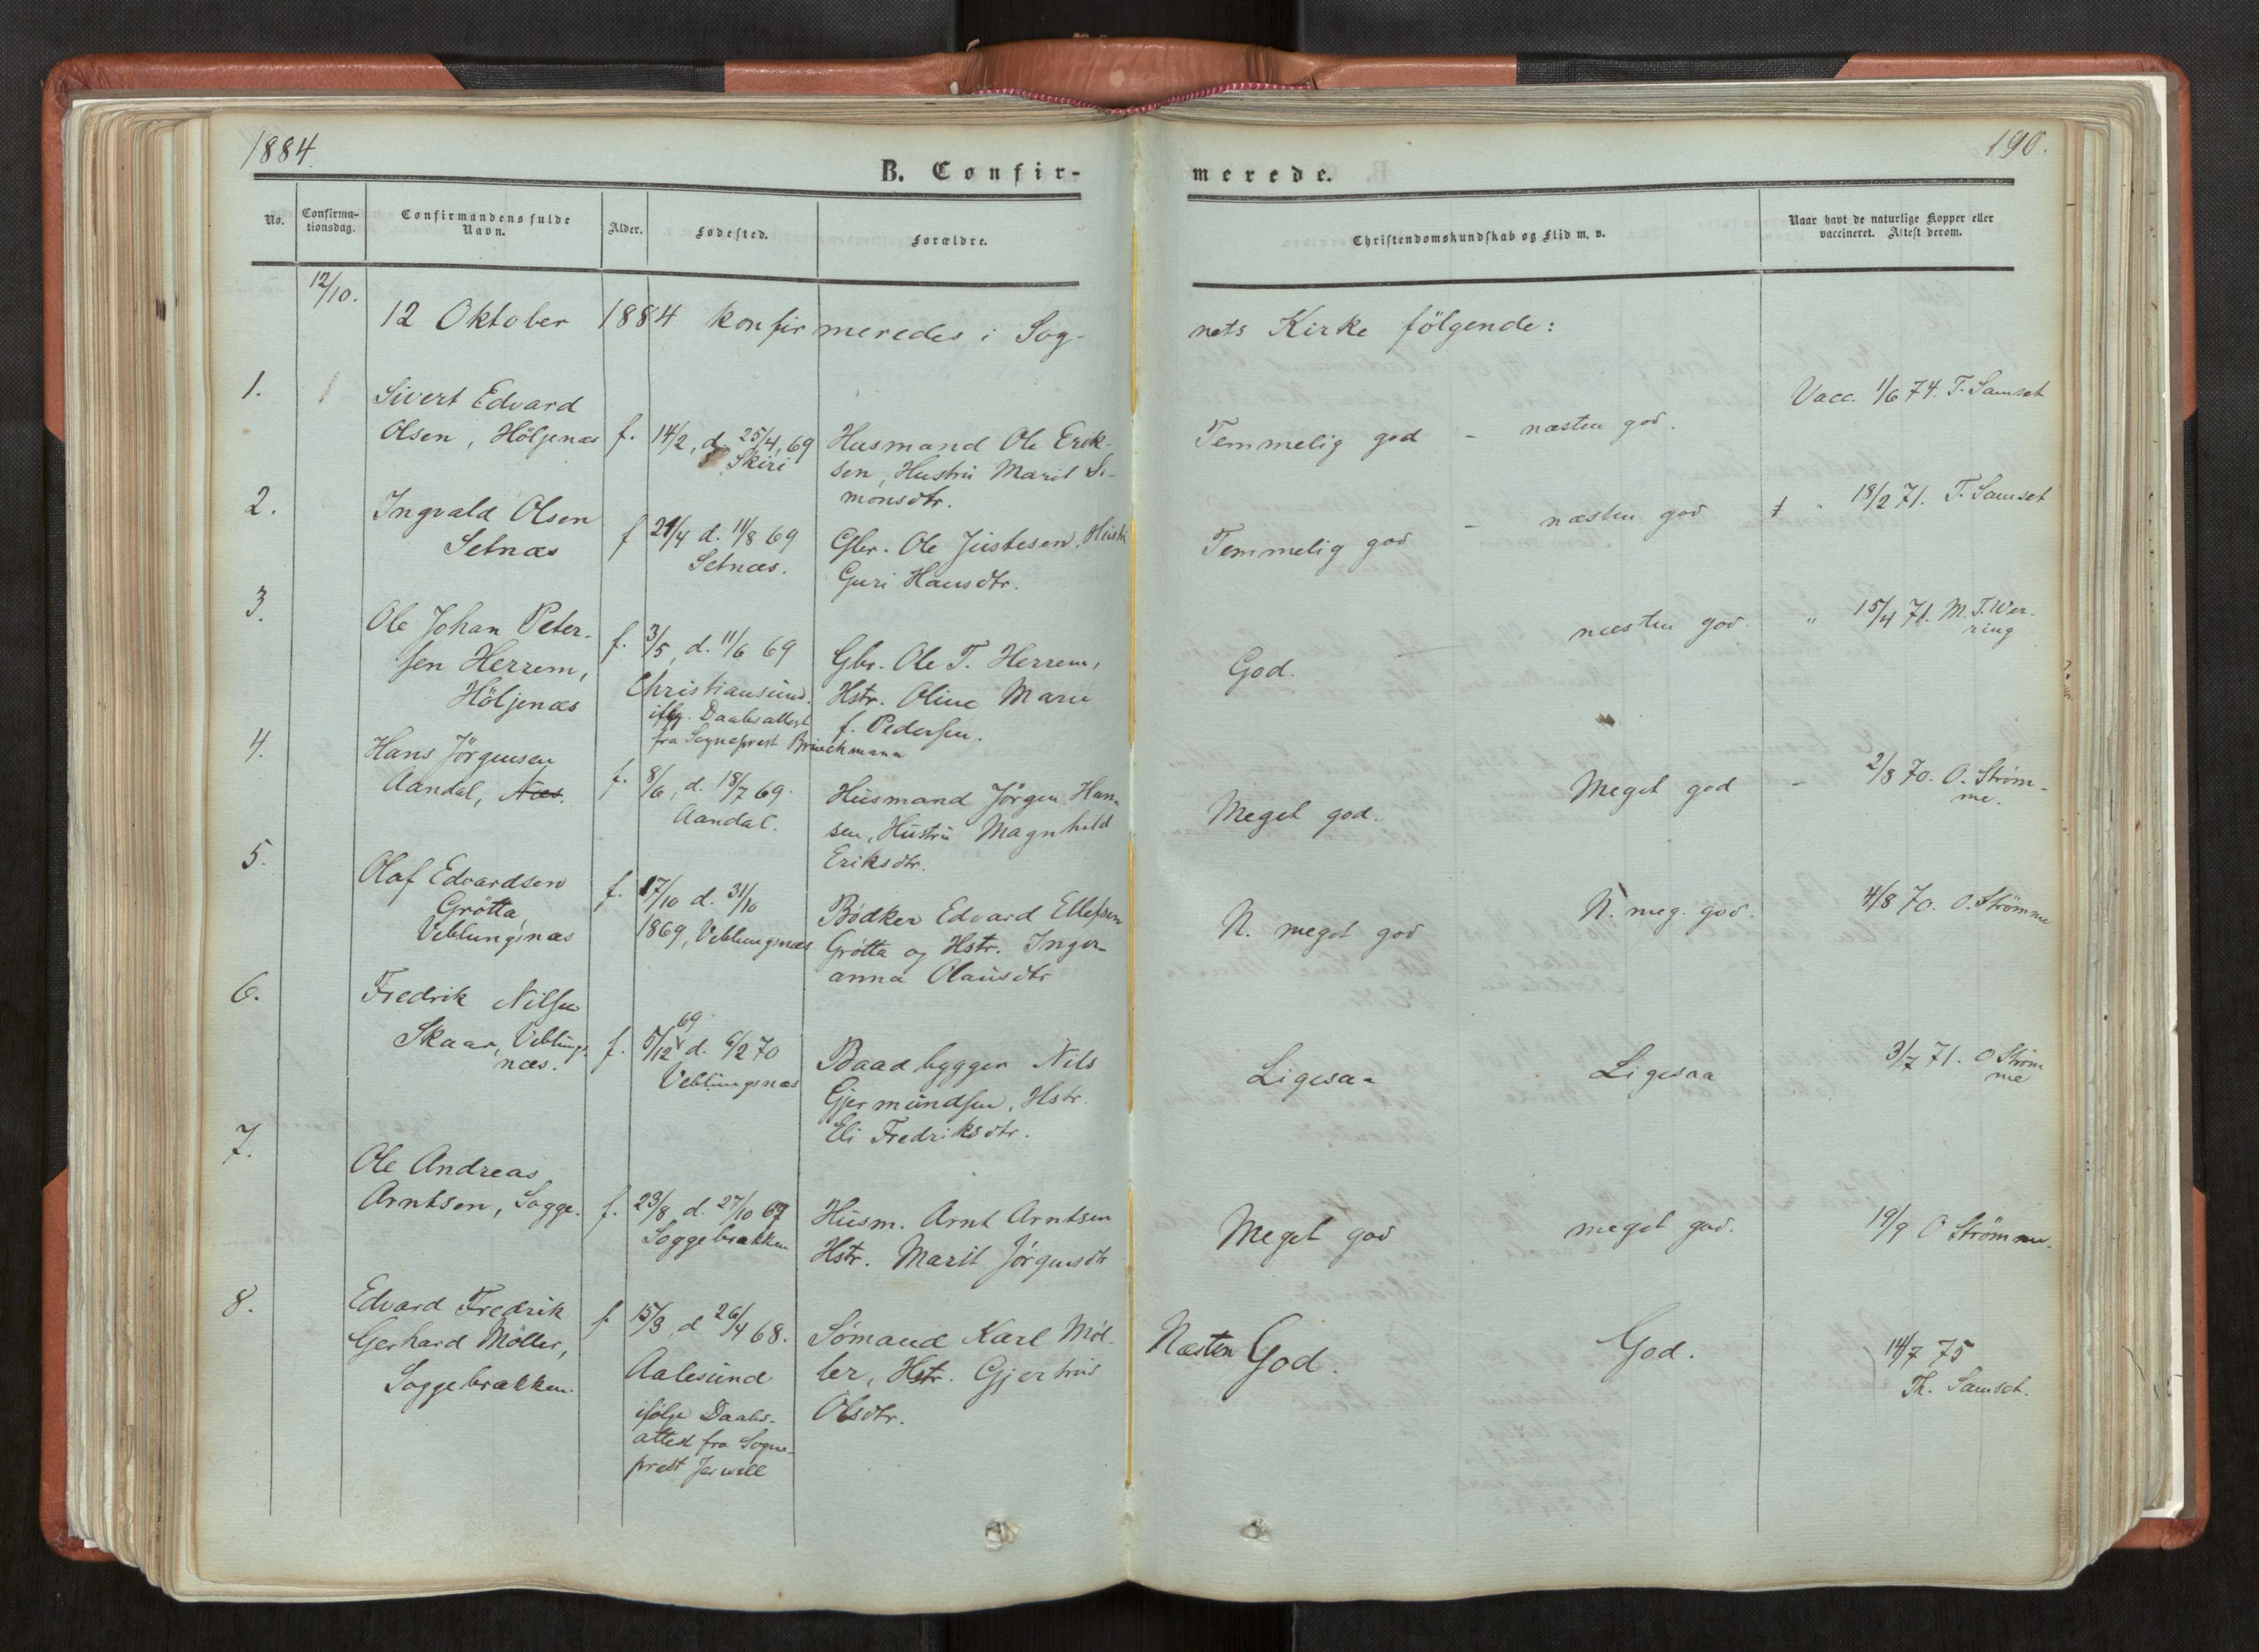 1884.
190.
B. Confir-
merede.
No.
Confirma-
tionsdag.
Confirmandens fulde
Navn.
Alder.
Fødested.
Forældre.
Christendomskundskab og Flid m. v.
Naar havt de naturlige Kopper eller
vaccineret. Attest derom.
12/10.
12 Oktober 1884 konfirmeredes i Sog-
nets Kirke følgende:
1.
Sivert Edvard
Olsen, Höljenæs
f. 14/2, d. 25/4, 69
Skiri
Husmand Ole Erik-
sen, Hustru Marit Si-
monsdtr.
Temmelig god - næsten god.
Vacc. 1/6 74. T. Samset
2.
Ingvald Olsen
Setnæs
f 21/4 d. 11/8 69
Setnæs.
Gbr. Ole Justesen, Hustr
Guri Hansdtr.
Temmelig god - næsten god
" 18/2 71. T. Samset
3.
Ole Johan Peter-
sen Herrem,
Höljenæs
f. 3/5, d. 11/6 69
Christiansund.
iflg. Daabsattest
fra Sogneprest Brinchmann
Gbr. Ole T. Herrem,
Hstr. Oline Marie
f. Pedersen.
God. - næsten god.
" 15/4 71. M. T. Wer-
ring
4.
Hans Jörgensen
Aandal, Næs.
f. 8/6, d. 18/7 69.
Aandal.
Husmand Jörgen Han-
sen, Hustru Magnhild
Eriksdtr.
Meget god. Meget god -
2/8 70. O. Strøm-
me.
5.
Olaf Edvardsen
Grötta,
Veblungsnæs
f. 17/10 d. 31/10
1869, Veblungsnæs
Bødker Edvard Ellefsen
Grötta og Hstr. Inger-
anna Olausdtr
N. meget god N. meg. god.
4/8 70. O. Strömme
6.
Fredrik Nilsen
Skaar, Veblungs-
næs.
69
f. 5/12 d. 6/2 70
Veblungsnæs
Baadbygger Nils
Gjermundsen, Hstr.
Eli Fredriksdtr.
Ligesaa Ligesaa
3/7 71. O Strøm
me
7.
Ole Andreas
Arntsen, Sogge.
f. 23/8 d. 27/10 67
Soggebrækken
Husm. Arnt Arntsen
Hstr. Marit Jörgensdtr
Meget god meget god.
19/9 O Strömme.
8.
Edvard Fredrik
Gerhard Möller,
Soggebrækken.
f. 15/3, d 26/4 68.
Aalesund
ifölge Daabs-
attest fra Sogne-
prest Jervell
Sömand Karl Möl-
ler, Hstr. Gjertrud
Olsdtr.
Næsten God. God.
14/7 75
Th. Samset.